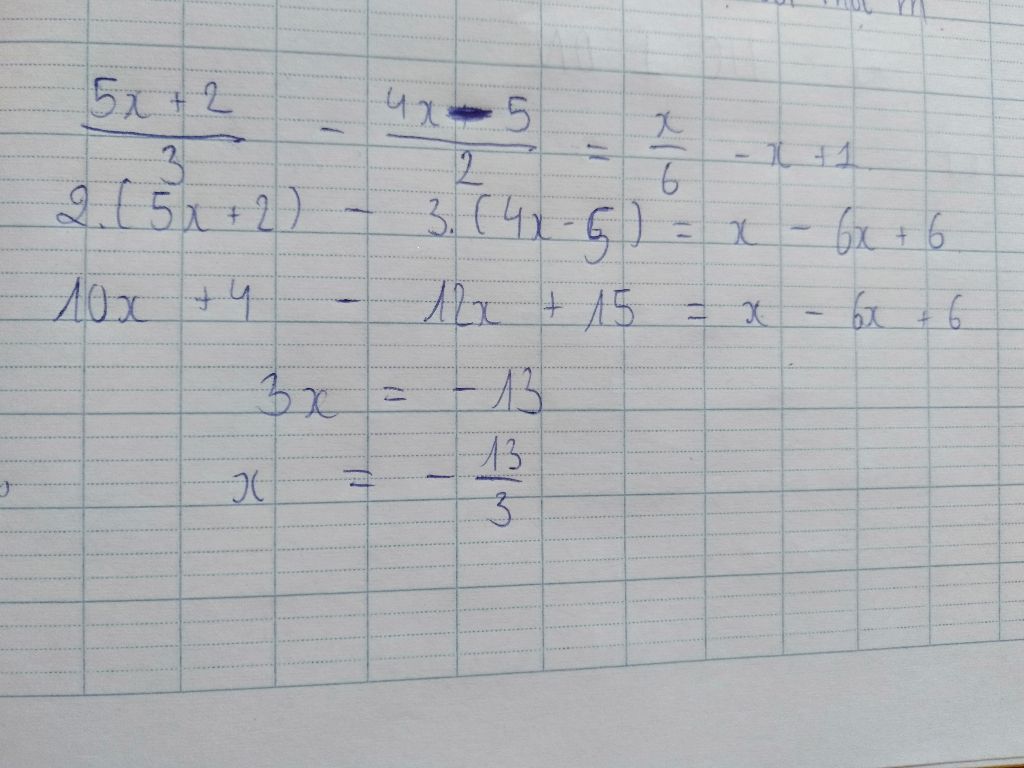 5x + 2 / 3 - 4x - 5 / 2 = x / 6 - x + 1
2.(5x + 2) - 3.(4x - 5) = x - 6x + 6
10x + 4 - 12x + 15 = x - 6x + 6
3x = - 13
x = - 13 / 3